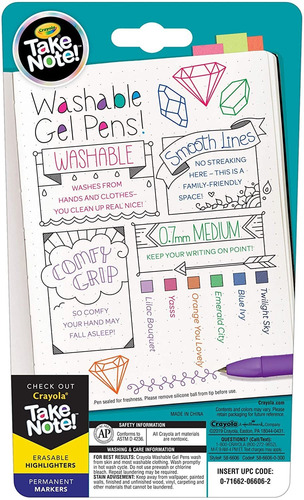 Crayola
Take
Note!
Washable
Gel Pens!
WASHABLE
WASHES FROM
HANDS AND CLOTHES–
YOU CLEAN UP REAL NICE!
Smooth Lines
NO STREAKING
HERE – THIS IS A
FAMILY-FRIENDLY
SPACE!
COMFY
GRIP
SO COMFY
YOUR HAND MAY
FALL ASLEEP!
0.7mm MEDIUM
KEEP YOUR WRITING ON POINT!
Lilac Bouquet
Yasss
Orange You Lovely
Emerald City
Blue Ivy
Twilight Sky
Pen sealed for freshness. Please remove silicone ball from tip before use.
MADE IN CHINA
CHECK OUT
Crayola
Take
Note!
ERASABLE
HIGHLIGHTERS
PERMANENT
MARKERS
SAFETY INFORMATION
AP
Conforms to
ASTM D 4236.
All Crayola art materials
are nontoxic.
WASHING & CARE INFORMATION
FOR BEST RESULTS: Crayola Washable Gel Pens wash
from skin and most washable clothing. Launder promptly
in hot wash cycle. Do not use prewash or chlorine
bleach. Repeat laundering may be required.
STAIN ADVISEMENT: Keep away from wallpaper, painted
walls, finished and unfinished wood, vinyl, carpeting and
other materials that cannot be laundered.
Crayola.com
Contents and colors may vary. Please
retain packaging for future reference.
Crayola
QUESTIONS?
INSERT UPC CODE:
0-71662-06606-2